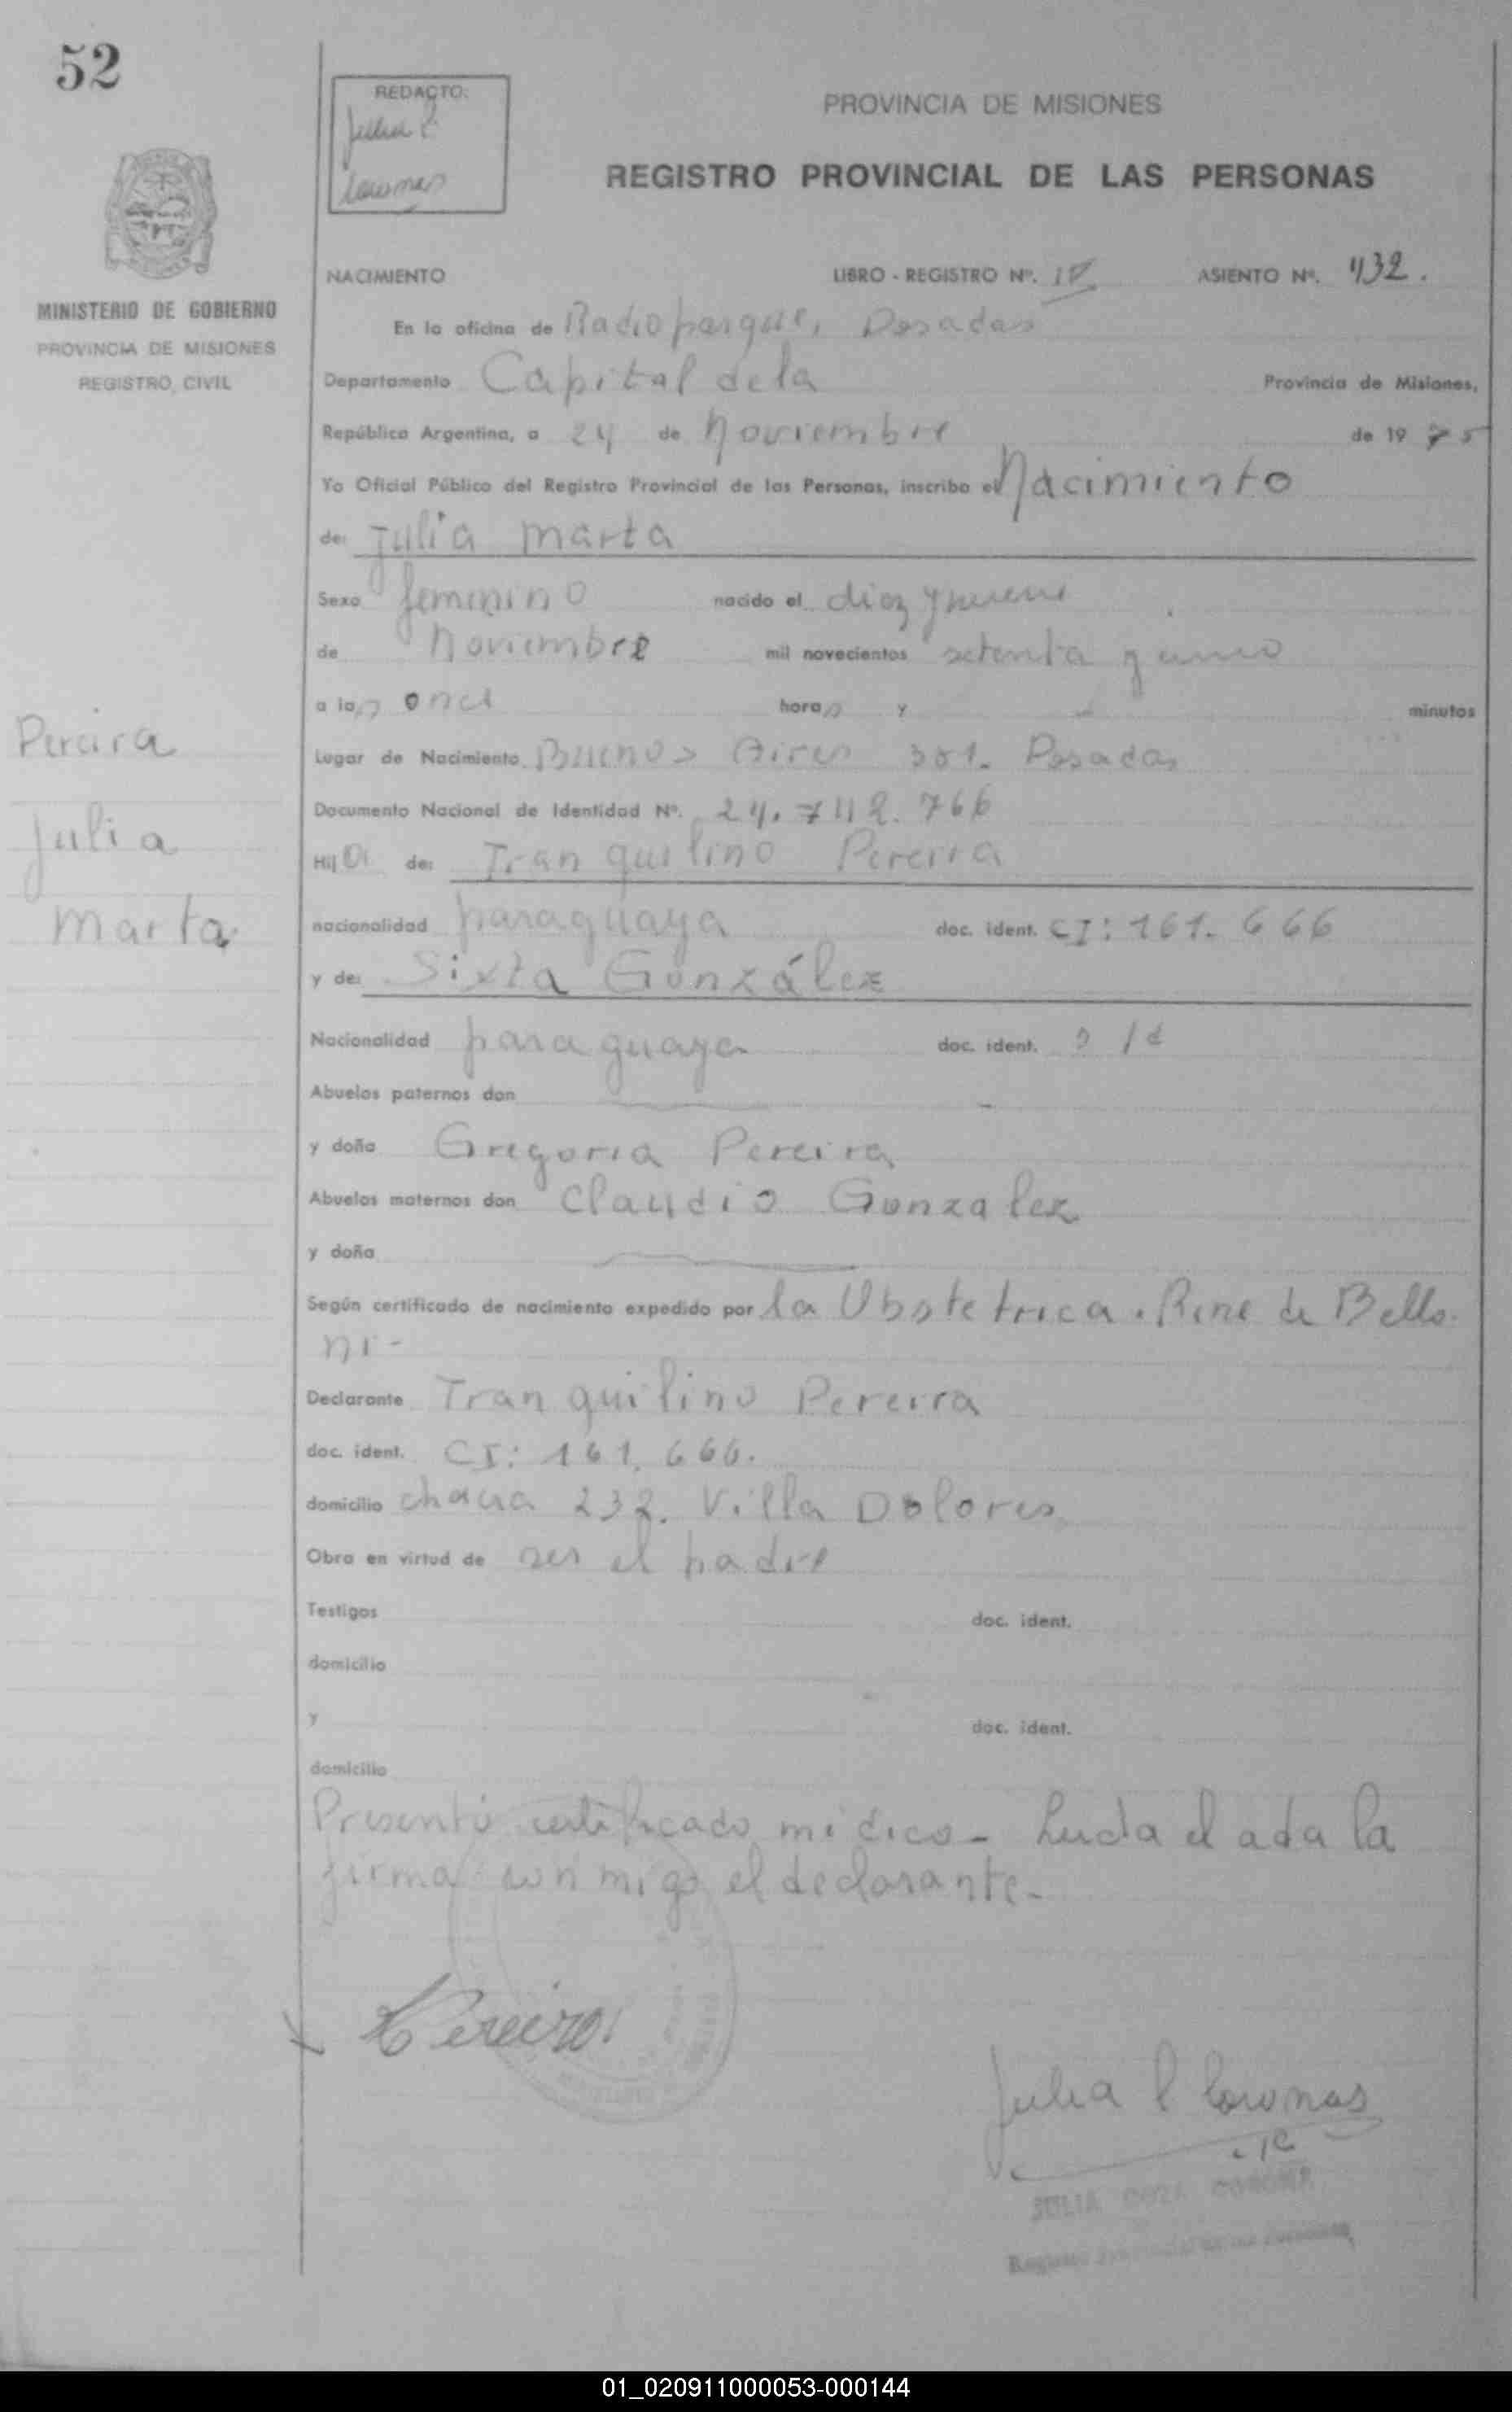 52
REDACTO:
Julia C
Coronas
PROVINCIA DE MISIONES
REGISTRO PROVINCIAL DE LAS PERSONAS
MINISTERIO DE GOBIERNO
PROVINCIA DE MISIONES
REGISTRO CIVIL
NACIMIENTO LIBRO - REGISTRO Nº. ASIENTO Nº. 432.
En la oficina de Radioparque, Posadas
Departamento Capital de la Provincia de Misiones,
República Argentina, a 24 de Noviembre de 1975
Yo Oficial Público del Registro Provincial de las Personas, inscribo el Nacimiento
de: Julia Marta
Sexo femenino nacido el diez y nueve
de Noviembre mil novecientos setenta y cinco
a las once horas y - minutos
Pereira
Julia
Marta
Lugar de Nacimiento Buenos Aires 301. Posadas
Documento Nacional de Identidad Nº. 24.742.766
Hija de: Tranquilino Pereira
nacionalidad paraguaya doc. ident. CI: 161.666
y de: Sixta González
Nacionalidad paraguaya doc. ident.
Abuelos paternos don
y doña Gregoria Pereira
Abuelos maternos don Claudio Gonzalez
y doña
Según certificado de nacimiento expedido por la Obstetrica. Rene de Bello
ni-
Declarante Tranquilino Pereira
doc. ident. CI: 161.666.
domicilio chacra 232. Villa Dolores
Obra en virtud de ser el padre
Testigos doc. ident.
domicilio
y doc. ident.
domicilio
Presentó certificado médico- Leida el acta la
firma conmigo el declarante-
Pereira
Julia C Coronas
JULIA CORONA
01_020911000053-000144